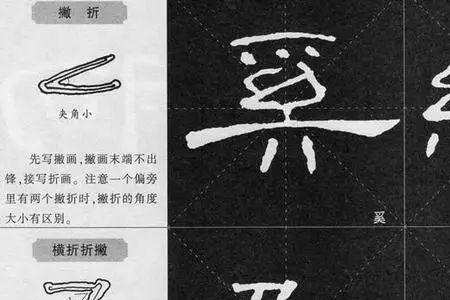 撇 折
夹角小
先写撇画，撇画末端不出
锋，接写折画。注意一个偏旁
里有两个撇折时，撇折的角度
大小有区别。
奚
横折折撇